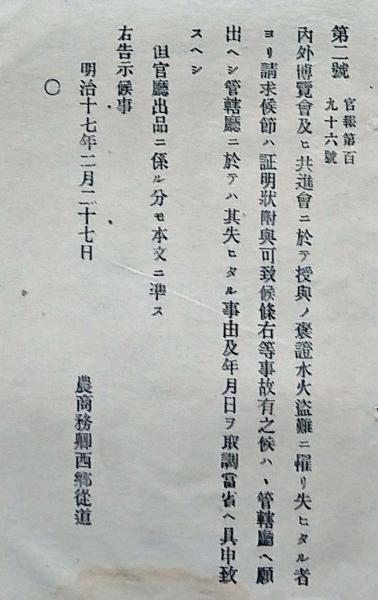 第二號
官報第百
九十六號
內外博覽會及ヒ共進會ニ於テ授與ノ褒證水火盜難ニ罹リ失ヒタル者
ヨリ請求候節ハ証明狀附與可致候條右等事故有之候ハヽ管轄廳ヘ願
出ヘシ管轄廳ニ於テハ其失ヒタル事由及年月日ヲ取調當省ヘ具申致
スヘシ
但官廳出品ニ係ル分モ本文ニ準ス
右告示候事
明治十七年二月二十七日
農商務卿西鄕從道
○